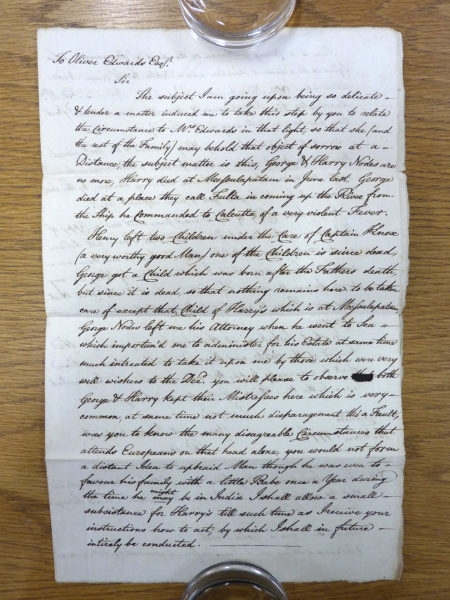 To Oliver Edwards Esqr.
Sir
The subject I am going upon being so delicate
& tender a matter induced me to take this step by you to relate
the Circumstance to Mrs. Edwards in that light, so that she (and
the rest of the Family) may behold that object of sorrow at a
Distance; the subject matter is this, George & Harry Nodes are
no more, Harry died at Messulapatam in June last, George
died at a place they call Fulta in coming up the River from
the Ship he Commanded to Calcutta, of a very violent Fever.
Henry left two Children under the Care of Captain Knox
(a very worthy good Man) one of the Children is since dead,
George got a Child which was born after the Fathers death
but since it is dead, so that nothing remains here to be taken
care of except that Child of Harrys which is at Messulapatam,
George Nodes left me his Attorney when he went to Sea
which importun'd me to administer for his Estate at same time
much intreated to take it upon me by those which were very
well wishers to the Decd. you will please to observe both
George & Harry kept their Mistresses here which is very
common, at same time not much disparagement tho' a Fault,
was you to know the many disagreable Circumstances that
attends Europeans on that head alone, you would not form
a distant Idea to upbraid Man though he was even to
favour his family with a little Babe once a Year during
the time he might be in India I shall allow a small
subsistance for Harry's till such time as I receive your
instructions how to act, by which I shall in future
intirely be conducted.